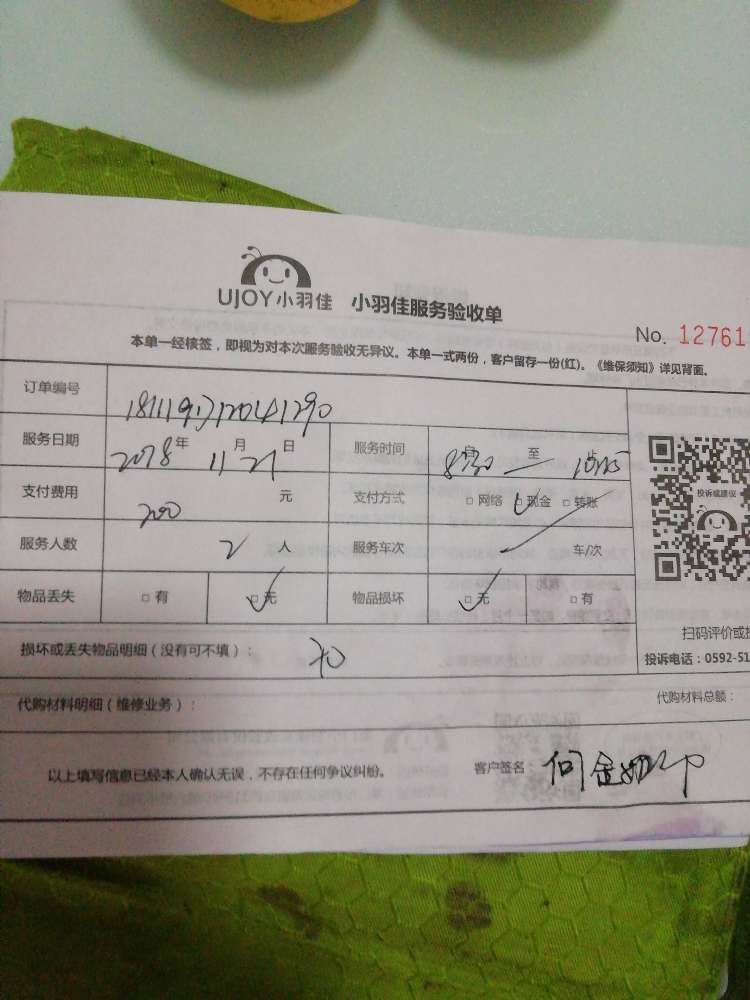 UJOY小羽佳 小羽佳服务验收单
No. 12761
本单一经核签，即视为对本次服务验收无异议。本单一式两份，客户留存一份(红)。《维保须知》详见背面。
订单编号
服务日期 2018年 11月21日 服务时间 8:30 至
支付费用 200 元 支付方式 □ 网络 □ 现金 □ 转账
服务人数 2 人 服务车次 车/次
物品丢失 □ 有 □ 无 物品损坏 □ 无 □ 有
投诉或建议
扫码评价或投
损坏或丢失物品明细（没有可不填）： 无
投诉电话：0592-51
代购材料明细（维修业务）： 代购材料总额：
以上填写信息已经本人确认无误，不存在任何争议纠纷。 客户签名： 何金